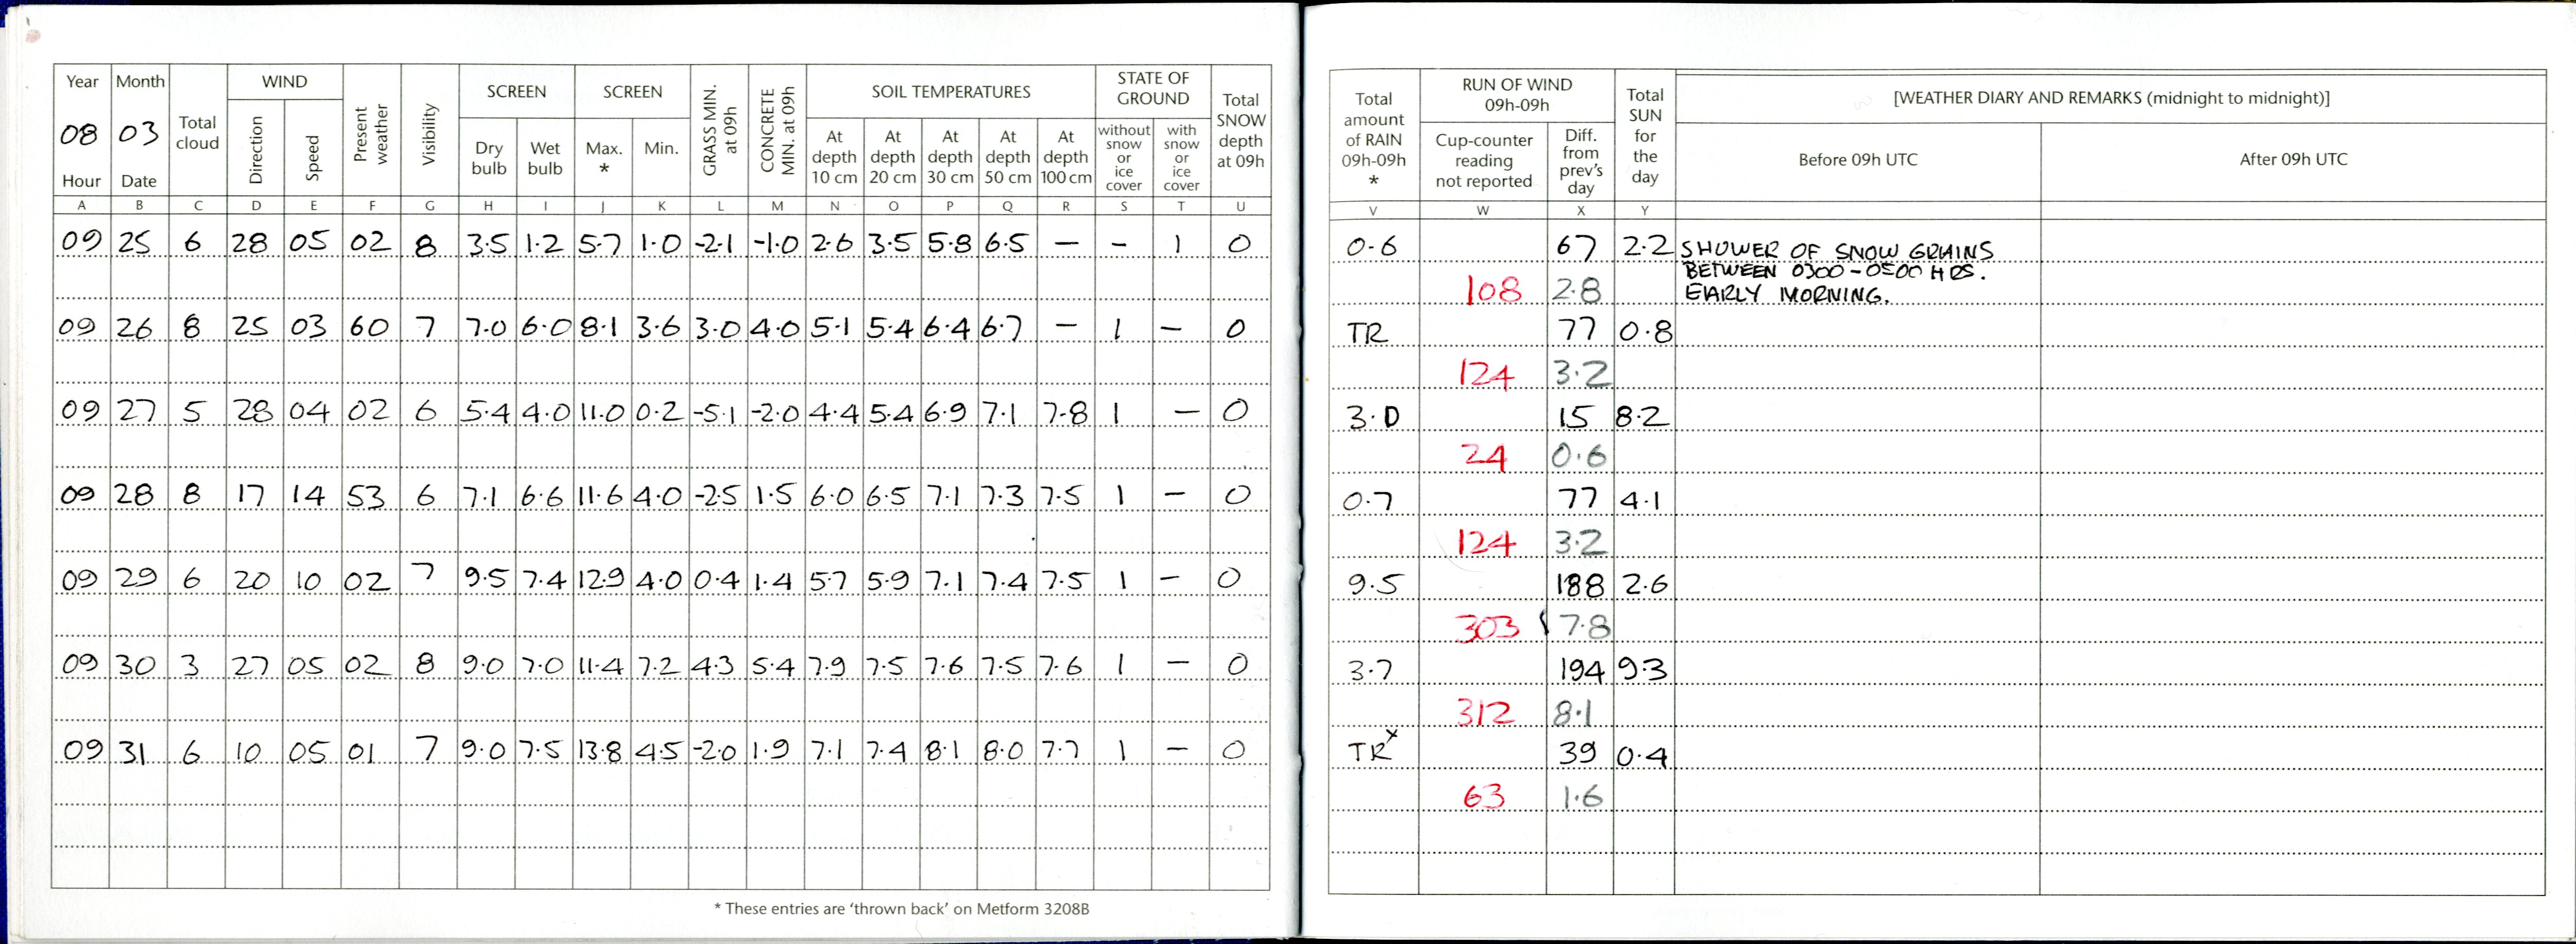 Year Month Total cloud WIND Present weather Visibility SCREEN SCREEN GRASS MIN. at 09h CONCRETE MIN. at 09h SOIL TEMPERATURES STATE OF GROUND Total SNOW depth at 09h
08 03 Direction Speed Dry bulb Wet bulb Max. * Min. At depth 10 cm At depth 20 cm At depth 30 cm At depth 50 cm At depth 100 cm without snow or ice cover with snow or ice cover
Hour Date
A B C D E F G H I J K L M N O P Q R S T U
09 25 6 28 05 02 8 3.5 1.2 5.7 1.0 -2.1 -1.0 2.6 3.5 5.8 6.5 — – 1 0
09 26 8 25 03 60 7 7.0 6.0 8.1 3.6 3.0 4.0 5.1 5.4 6.4 6.7 — 1 — 0
09 27 5 28 04 02 6 5.4 4.0 11.0 0.2 -5.1 -2.0 4.4 5.4 6.9 7.1 7.8 1 — 0
09 28 8 17 14 53 6 7.1 6.6 11.6 4.0 -2.5 1.5 6.0 6.5 7.1 7.3 7.5 1 — 0
09 29 6 20 10 02 7 9.5 7.4 12.9 4.0 0.4 1.4 5.7 5.9 7.1 7.4 7.5 1 — 0
09 30 3 27 05 02 8 9.0 7.0 11.4 7.2 4.3 5.4 7.9 7.5 7.6 7.5 7.6 1 — 0
09 31 6 10 05 01 7 9.0 7.5 13.8 4.5 -2.0 1.9 7.1 7.4 8.1 8.0 7.7 1 — 0
* These entries are 'thrown back' on Metform 3208B
Total amount of RAIN 09h-09h * RUN OF WIND 09h-09h Total SUN for the day [WEATHER DIARY AND REMARKS (midnight to midnight)]
Cup-counter reading not reported Diff. from prev's day Before 09h UTC After 09h UTC
V W X Y
0.6 67 2.2 SHOWER OF SNOW GRAINS
BETWEEN 0300-0500 HRS.
108 2.8 EARLY MORNING.
TR 77 0.8
124 3.2
3.0 15 8.2
24 0.6
0.7 77 4.1
124 3.2
9.5 188 2.6
303 7.8
3.7 194 9.3
312 8.1
TR x 39 0.4
63 1.6